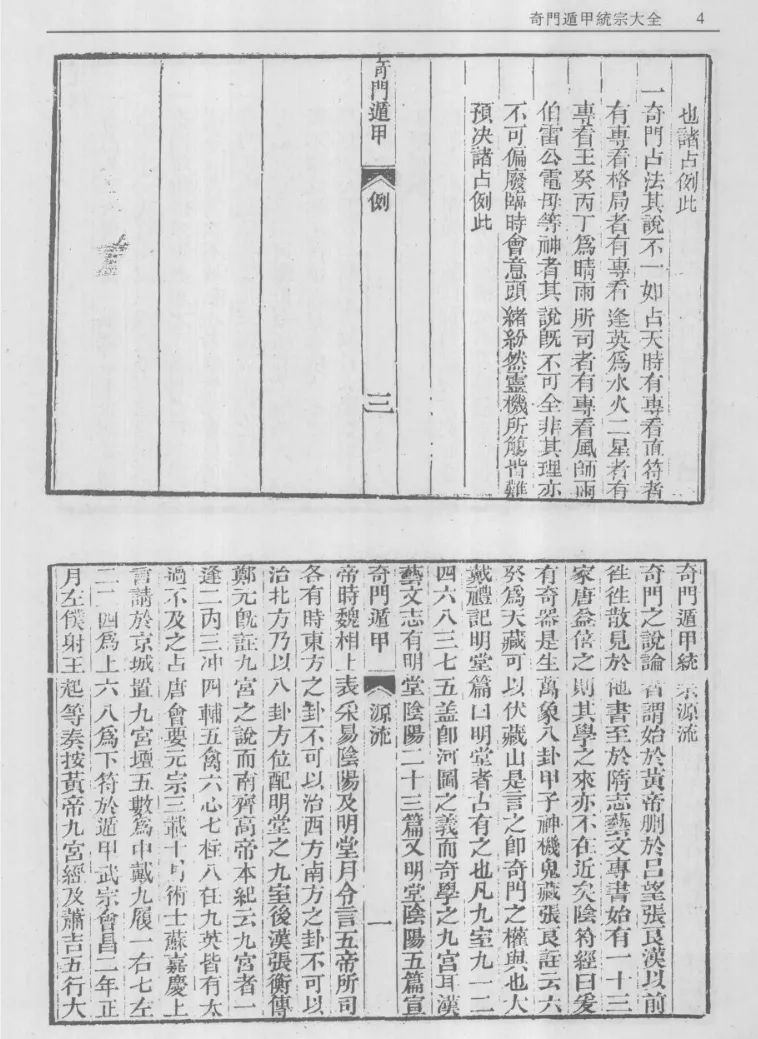 奇門遁甲統宗大全 4
也諸占例此
一奇門占法其說不一如占天時有專看直符者
有專看格局者有專看逢英爲水火二星者有
專看壬癸丙丁爲晴雨所司者有專看風師雨
伯雷公電母等神者其說旣不可全非其理亦
不可偏廢臨時會意頭緒紛然靈機所觸皆難
預决諸占例此
奇門遁甲 例 三
奇門遁甲統宗源流
奇門之說論者謂始於黃帝刪於呂望張良漢以前
往往散見於他書至於隋志藝文專書始有一十三
家唐益倍之則其學之來亦不在近矣陰符經曰爰
有奇器是生萬象八卦甲子神機鬼藏張良註云六
癸爲天藏可以伏藏山是言之卽奇門之權輿也大
戴禮記明堂篇曰明堂者占有之也凡九室九一二
四六八三七五盖卽河圖之義而奇學之九宫耳漢
藝文志有明堂陰陽二十三篇又明堂陰陽五篇宣
奇門遁甲 源流 一
帝時魏相上表采易陰陽及明堂月令言五帝所司
各有時東方之卦不可以治西方南方之卦不可以
治北方乃以八卦方位配明堂之九室後漢張衡傳
鄭元旣註九宮之說而南齊高帝本紀云九宫者一
逢二丙三冲四輔五禽六心七柱八任九英皆有太
過不及之占唐會要元宗三載十月術士蘇嘉慶上
言請於京城置九宮壇五數爲中戴九履一右七左
三二四爲上六八爲下符於遁甲武宗會昌二年正
月左僕射王起等奏按黃帝九宮經及蕭吉五行大